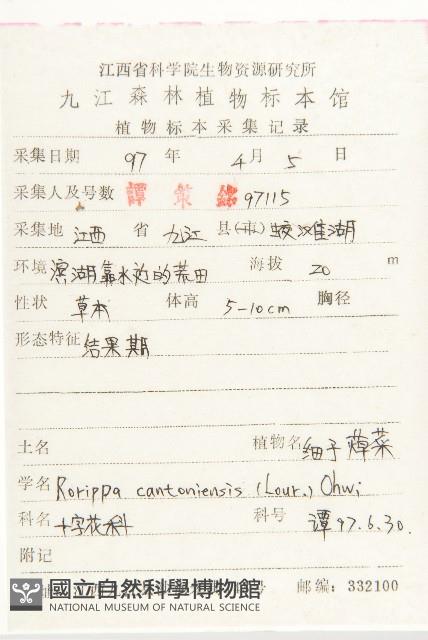 江西省科学院生物资源研究所
九江森林植物标本馆
植物标本采集记录
采集日期 97 年 4月 5 日
采集人及号数 譚策銘 97115
采集地 江西 省 九江 县(市)
环境 滨湖靠水边的荒田 海拔 20 m
性状 草本 体高 5-10cm 胸径
形态特征 结果期
土名 植物名 细子蔊菜
学名 Rorippa cantoniensis (Lour.) Ohwi
科名 十字花科 科号 谭97.6.30.
附记
國立自然科學博物館 号 邮编: 332100
NATIONAL MUSEUM OF NATURAL SCIENCE